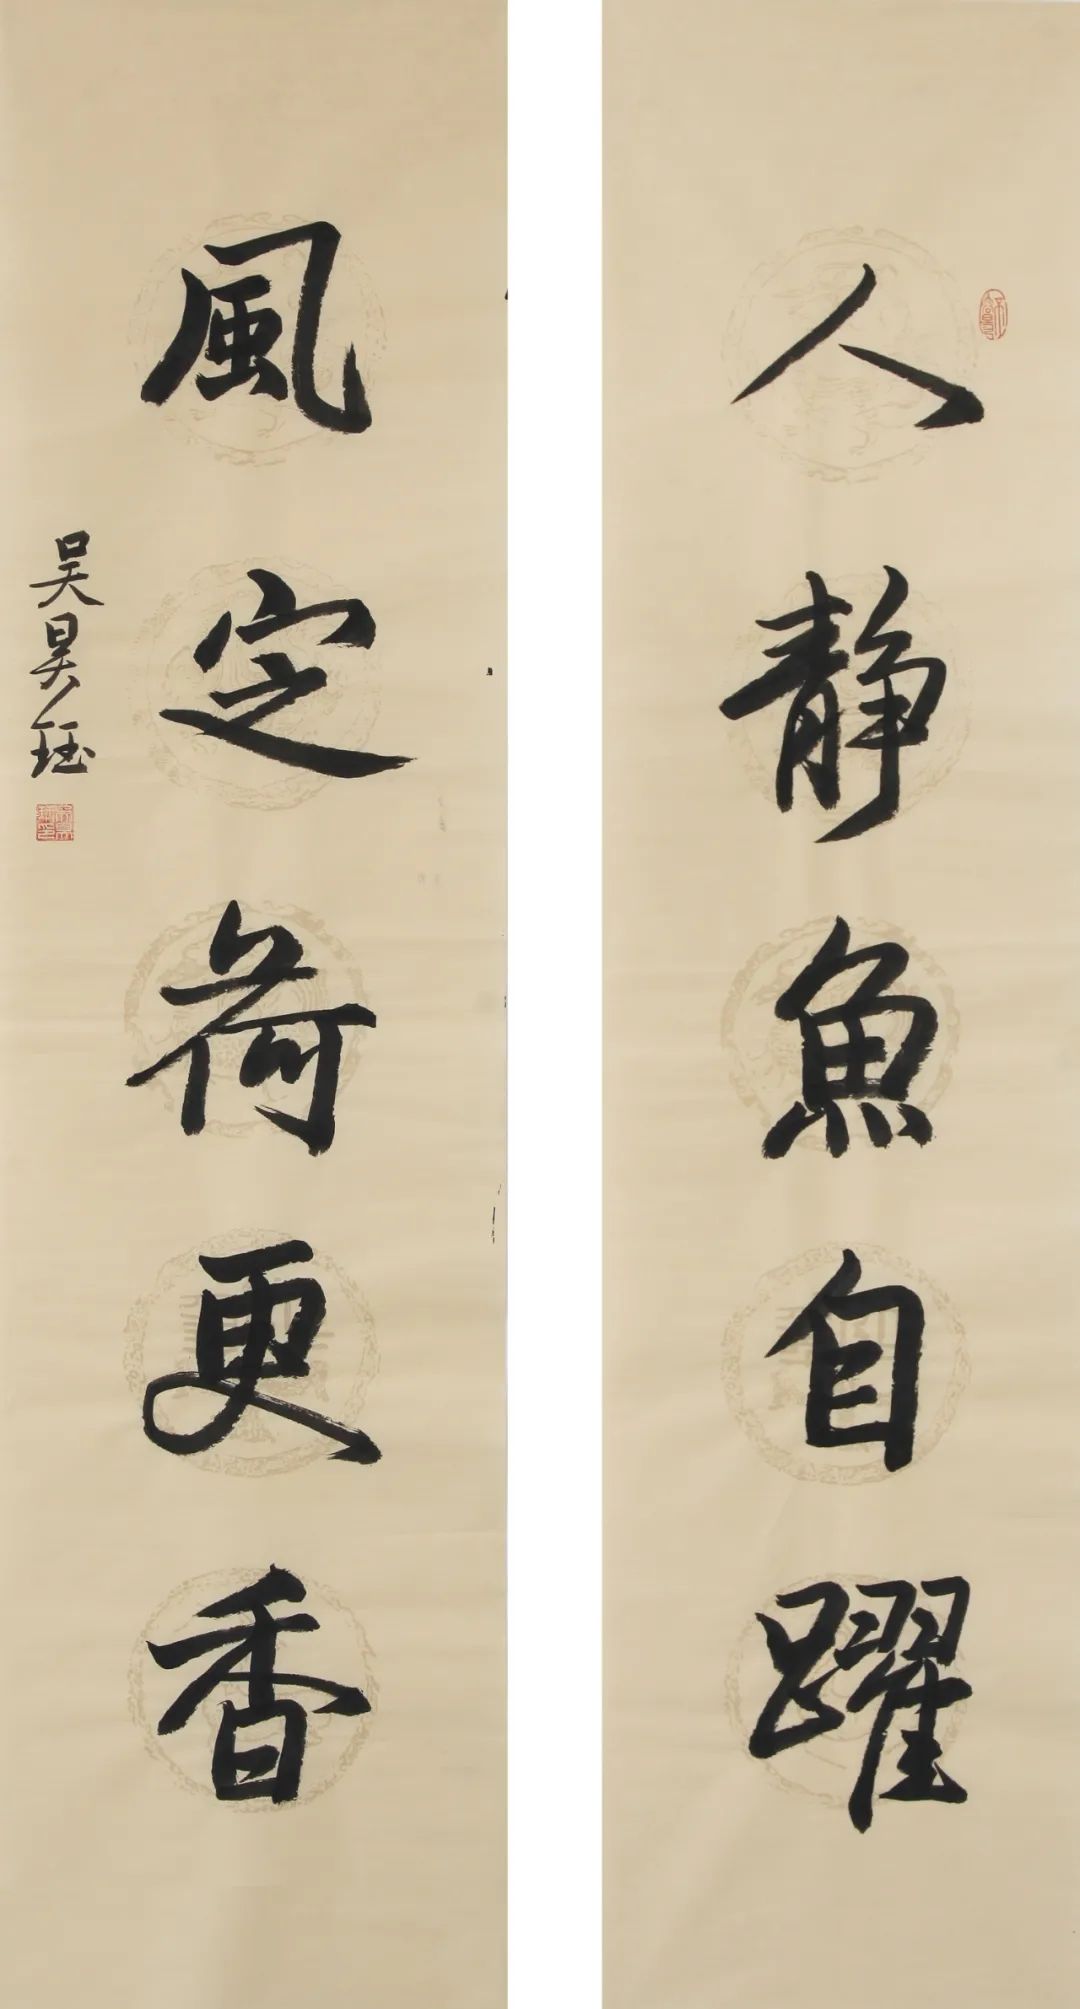 人静魚自躍
風定荷更香
吴昊珏